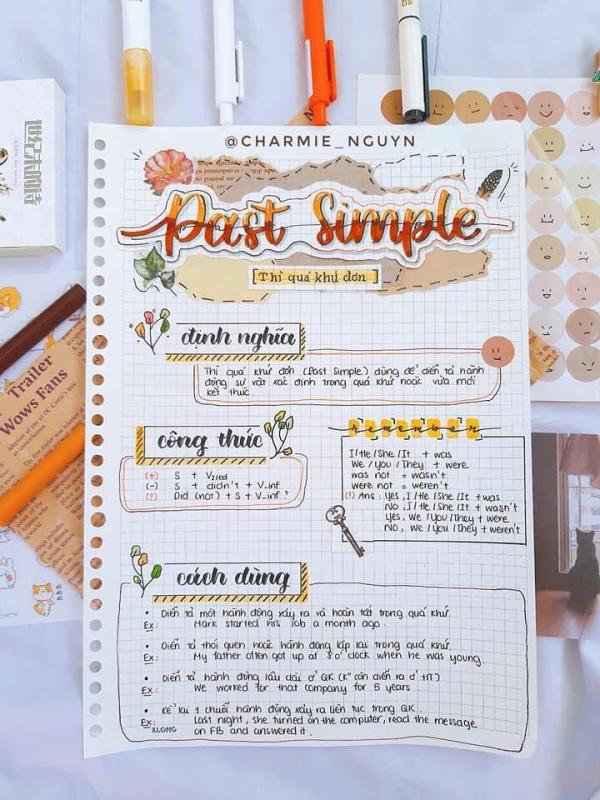 @CHARMIE_NGUYN
Past Simple
[Thì quá khứ đơn]
định nghĩa
Thì quá khứ đơn (Past Simple) dùng để diễn tả hành
động sự vật xác định trong quá khứ hoặc vừa mới
kết thúc
công thức
(+) S + V2/ed
(-) S + didn't + V_inf
(?) Did (not) + S + V_inf ?
remember
I/He/She/It + was
We/You/They + were
was not = wasn't
were not = weren't
(!) Ans : Yes, I/He/She/It + was
No, I/He/She/It + wasn't
Yes, We/You/They + were
No, We/You/They + weren't
cách dùng
• Diễn tả một hành động xảy ra và hoàn tất trong quá khứ.
Ex: Mark started his job a month ago.
• Diễn tả thói quen hoặc hành động lặp lại trong quá khứ
Ex: My father often got up at 8 o'clock when he was young.
• Diễn tả hành động lâu dài ở QK (K° còn diễn ra ở HT)
Ex: We worked for that company for 5 years
• Kể lại 1 chuỗi hành động xảy ra liên tục trong QK.
Ex: Last night, she turned on the computer, read the message
on FB and answered it.
KLONG
Trailer
Wows Fans